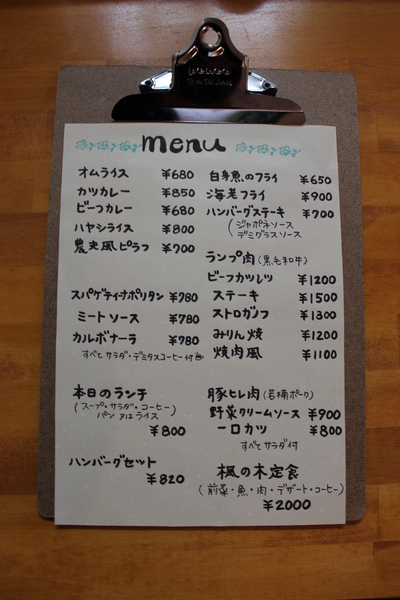 menu
オムライス ¥680
カツカレー ¥850
ビーフカレー ¥680
ハヤシライス ¥800
農夫風ピラフ ¥700
スパゲティナポリタン ¥780
ミートソース ¥780
カルボナーラ ¥780
すべてサラダ・デミタスコーヒー付
本日のランチ
(スープ・サラダ・コーヒー)
パン 又はライス
¥800
ハンバーグセット
¥820
白身魚のフライ ¥650
海老フライ ¥900
ハンバーグステーキ ¥700
(ジャポネソース
デミグラスソース
ランプ肉(黒毛和牛)
ビーフカツレツ ¥1200
ステーキ ¥1500
ストロガノフ ¥1300
みりん焼 ¥1200
焼肉風 ¥1100
豚ヒレ肉(若楠ポーク)
野菜クリームソース ¥900
一口カツ ¥800
すべてサラダ付
楓の木定食
(前菜・魚・肉・デザート・コーヒー)
¥2000